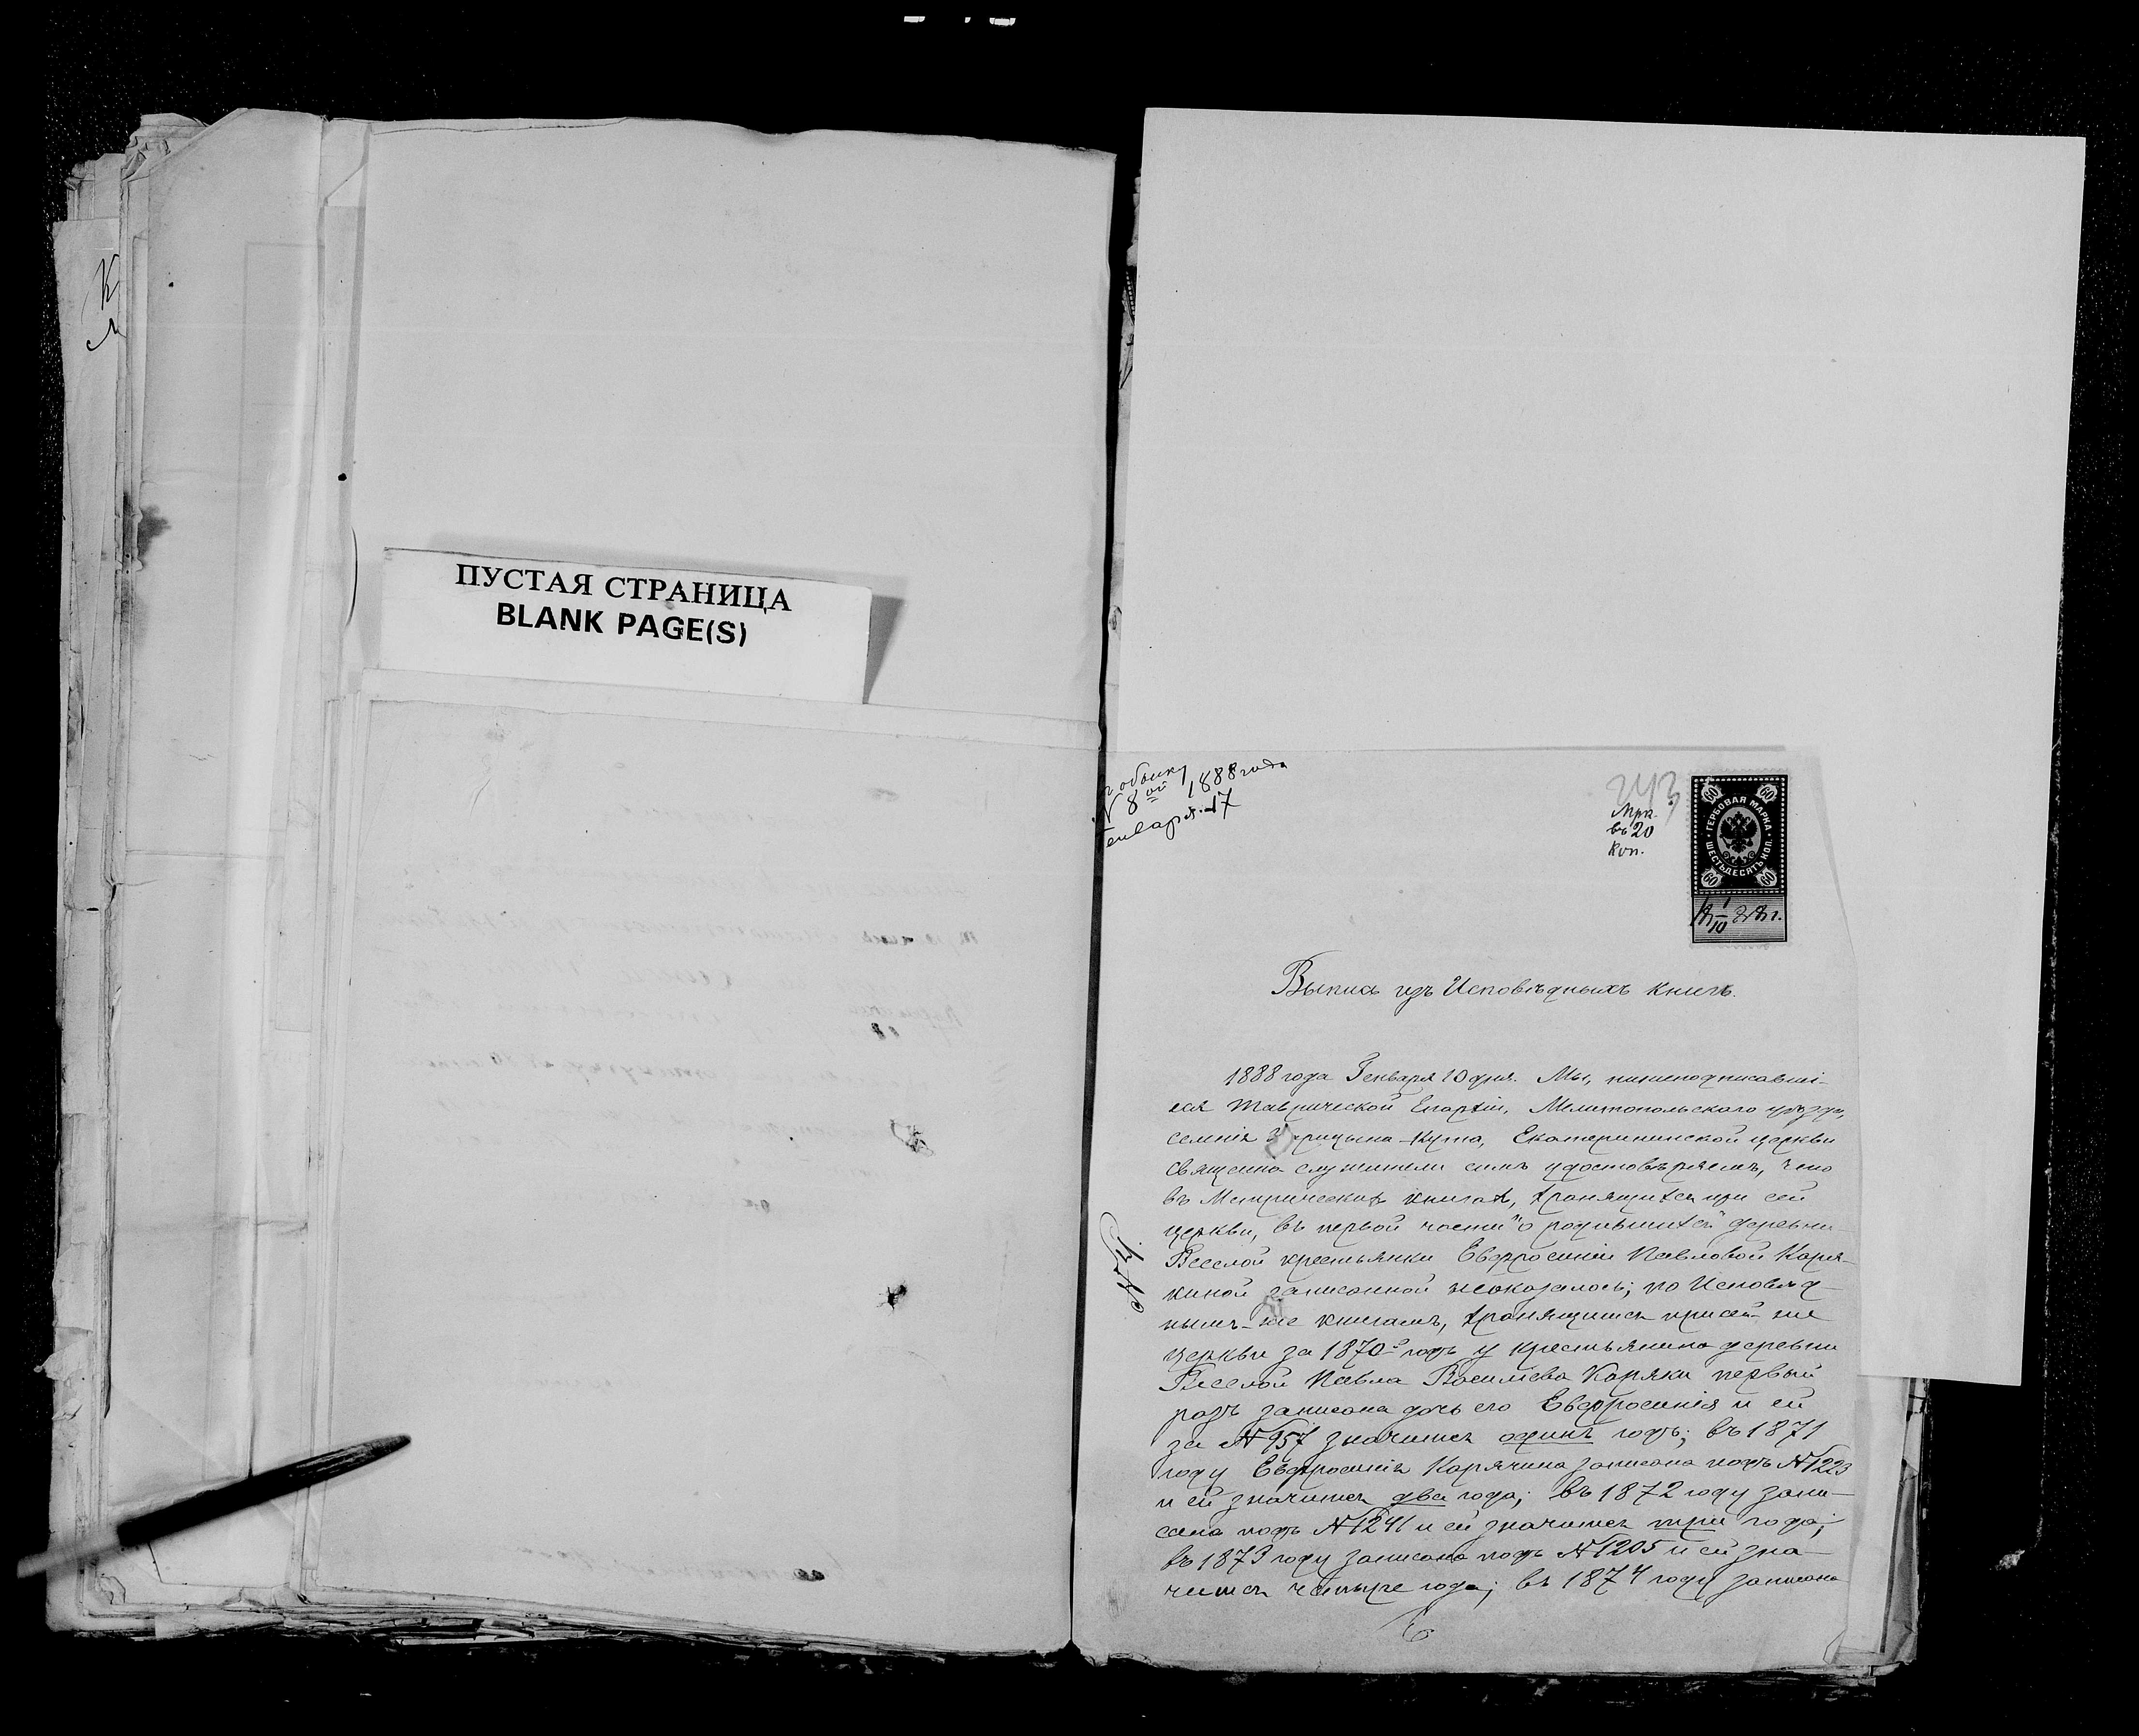 ПУСТАЯ СТРАНИЦА
BLANK PAGE(S)
обыску
N 8ой 1888 года
Генваря 17
243
Мрк.
въ 20
коп.
60 60
ГЕРБОВАЯ МАРКА
ШЕСТЬДЕСЯТЬ КОП.
60 60
18 1/10 88 г.
Выпись изъ Исповѣдныхъ книгъ.
1888 года Генваря 10 дня. Мы, нижеподписавші-
еся Таврической Епархіи, Мелитопольскаго уѣзда,
селенія Царицына-Кута, Екатерининской церкви
священно служители симъ удостовѣряемъ, что
въ Метрическихъ книгахъ, хранящихся при сей
церкви, въ первой части "о родившихся" деревни
Веселой крестьянки Евфросиніи Павловой Коря-
киной записанной неоказалось; по Исповѣд-
нымъ-же книгамъ, хранящимся присей-же
церкви за 1870й годъ у крестьянина деревни
Веселой Павла Васильева Коряки первый
разъ записана дочь его Евфросинія и ей
за №957 значится одинъ годъ; въ 1871
году Евфросинія Корячина записана подъ №1223
и ей значится два года; въ 1872 году запи-
сана подъ №1241 и ей значится три года;
въ 1873 году записана подъ №1205 и ей зна-
чится четыре года; въ 1874 году записана